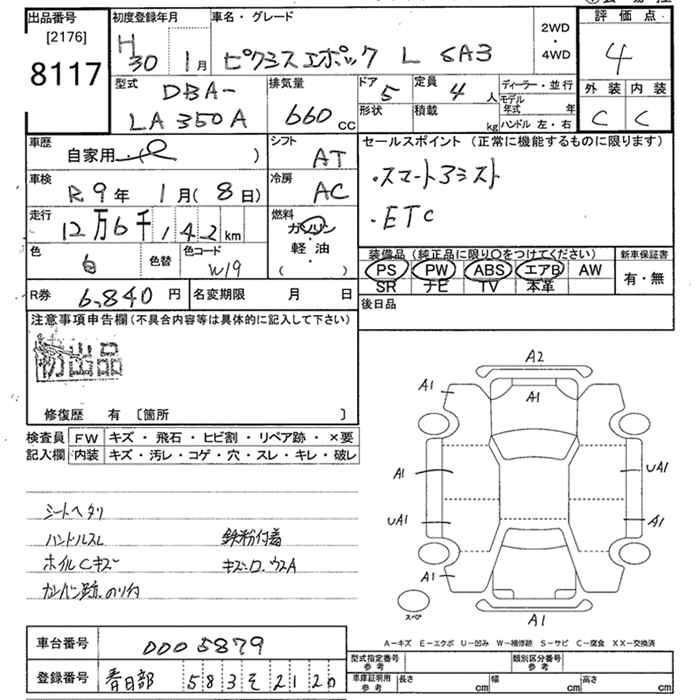 出品番号 初度登録年月 車名・グレード 評価点
[2176]
8117 H30 1月 ピクシスエポック L SA3 2WD・4WD 4
型式 排気量 ドア 定員 ディーラー・並行 外装 内装
DBA- 5 4人 モデル年式 年
LA350A 660cc 形状 積載 kg ハンドル 左・右 C C
車歴 シフト セールスポイント (正常に機能するものに限ります)
自家用 ) AT
車検 冷房 ・スマートアシスト
R9年 1月(8日) AC
走行 燃料 ・ETC
12万6千142km ガソリン
軽油
( )
色 色替 色コード 装備品(純正品に限り○をつけてください) 新車保証書
白 W19 PS PW ABS エアB AW 有・無
SR ナビ TV 本革
R券 6,840円 名変期限 月 日 後日品
注意事項申告欄(不具合内容等は具体的に記入して下さい)
初出品
修復歴 有 [箇所 ]
検査員 FW キズ・飛石・ヒビ割・リペア跡・×要
記入欄 内装 キズ・汚レ・コゲ・穴・スレ・キレ・破レ
A2
A1 A1 A1
A1 UA1
UA1 A1
A1
スペア A1
シートヘタリ
ハンドルスレ 鉄粉付着
ホイルCキズ
A-キズ E-エクボ U-凹み W-補修跡 S-サビ C-腐食 XX-交換済
車台番号 0005879
登録番号 春日部 583そ2120
型式指定番号 参考 類別区分番号 参考
車庫証明用 参考 長さ cm 幅 cm 高さ cm